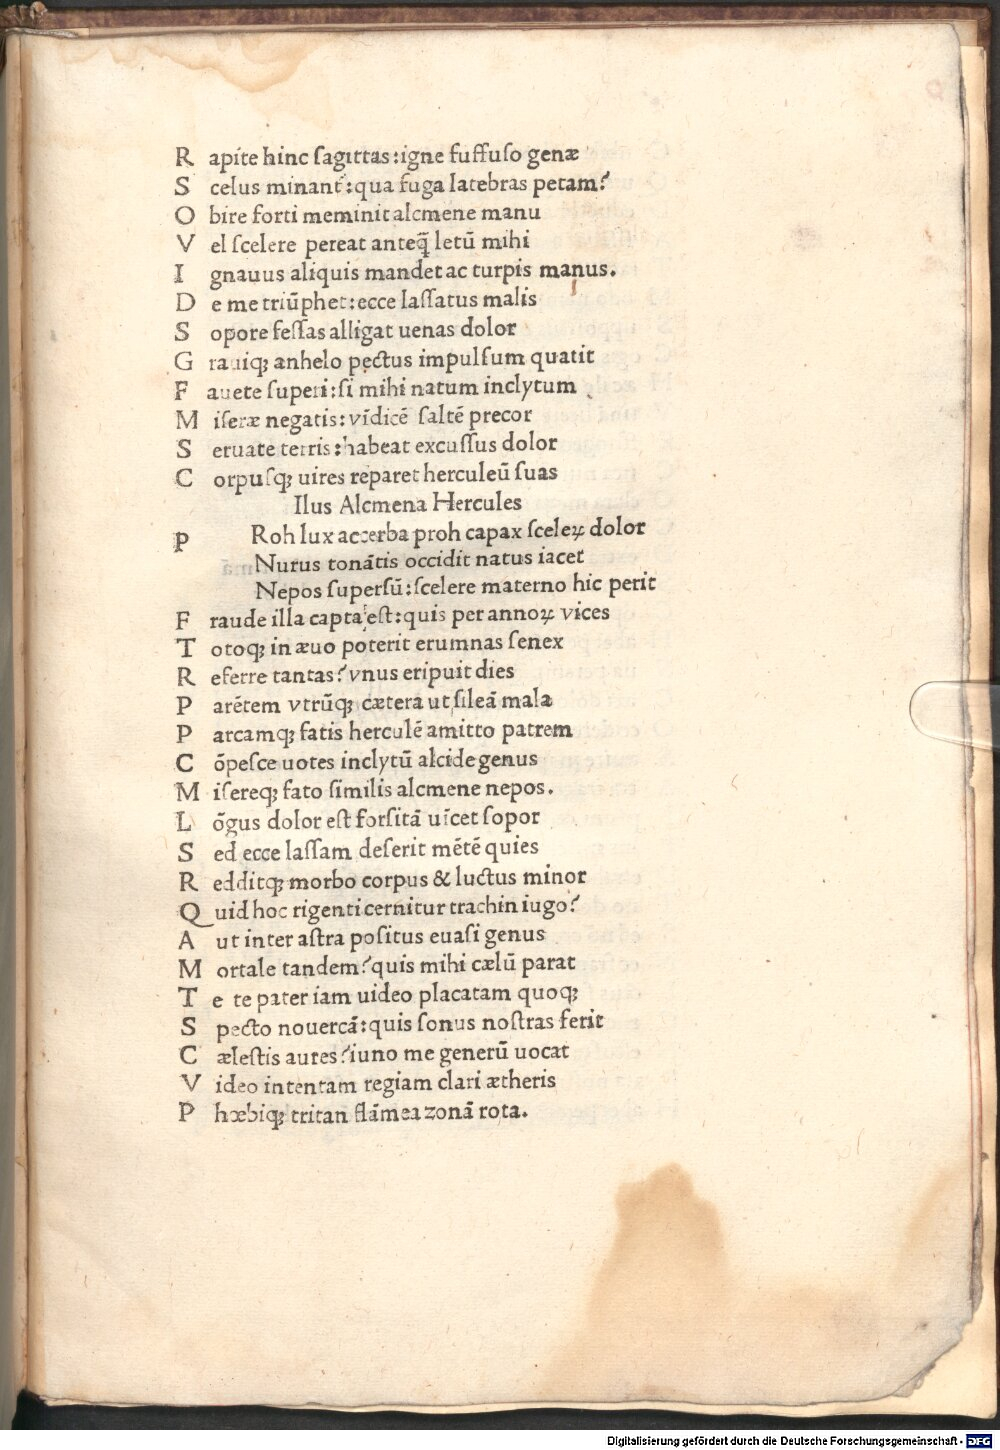 R apite hinc ſagittas:igne ſuffuſo genæ
S celus minant᷑:qua fuga latebras petam?
O bire forti meminit alcmene manu
V el ſcelere pereat anteq̄ letū mihi
I gnauus aliquis mandet ac turpis manus.
D e me triūphet:ecce laſſatus malis
S opore feſſas alligat uenas dolor
G rauiqꝫ anhelo pectus impulſum quatit
F auete ſuperi:ſi mihi natum inclytum
M iſeræ negatis:vīdicē ſaltē precor
S eruate terris:habeat excuſſus dolor
C orpuſqꝫ uires reparet herculeū ſuas
Ilus Alcmena Hercules
P Roh lux accerba proh capax ſceleꝝ dolor
Nurus tonātis occidit natus iacet
Nepos ſuperſū:ſcelere materno hic perit
F raude illa capta eſt:quis per annoꝝ vices
T otoqꝫ in æuo poterit erumnas ſenex
R eferre tantas?vnus eripuit dies
P arētem vtrūqꝫ cætera ut ſileā mala
P arcamqꝫ fatis herculē amitto patrem
C ōpeſce uotes inclytū alcide genus
M iſereqꝫ fato ſimilis alcmene nepos.
L ōgus dolor eſt forſitā uīcet ſopor
S ed ecce laſſam deſerit mētē quies
R edditqꝫ morbo corpus & luctus minor
Q uid hoc rigenti cernitur trachin iugo?
A ut inter aſtra poſitus euaſi genus
M ortale tandem?quis mihi cælū parat
T e te pater iam uideo placatam quoqꝫ
S pecto nouercā:quis ſonus noſtras ferit
C æleſtis aures?iuno me generū uocat
V ideo intentam regiam clari ætheris
P hæbiqꝫ tritan flāmea zonā rota.
Digitalisierung gefördert durch die Deutsche Forschungsgemeinschaft - DFG